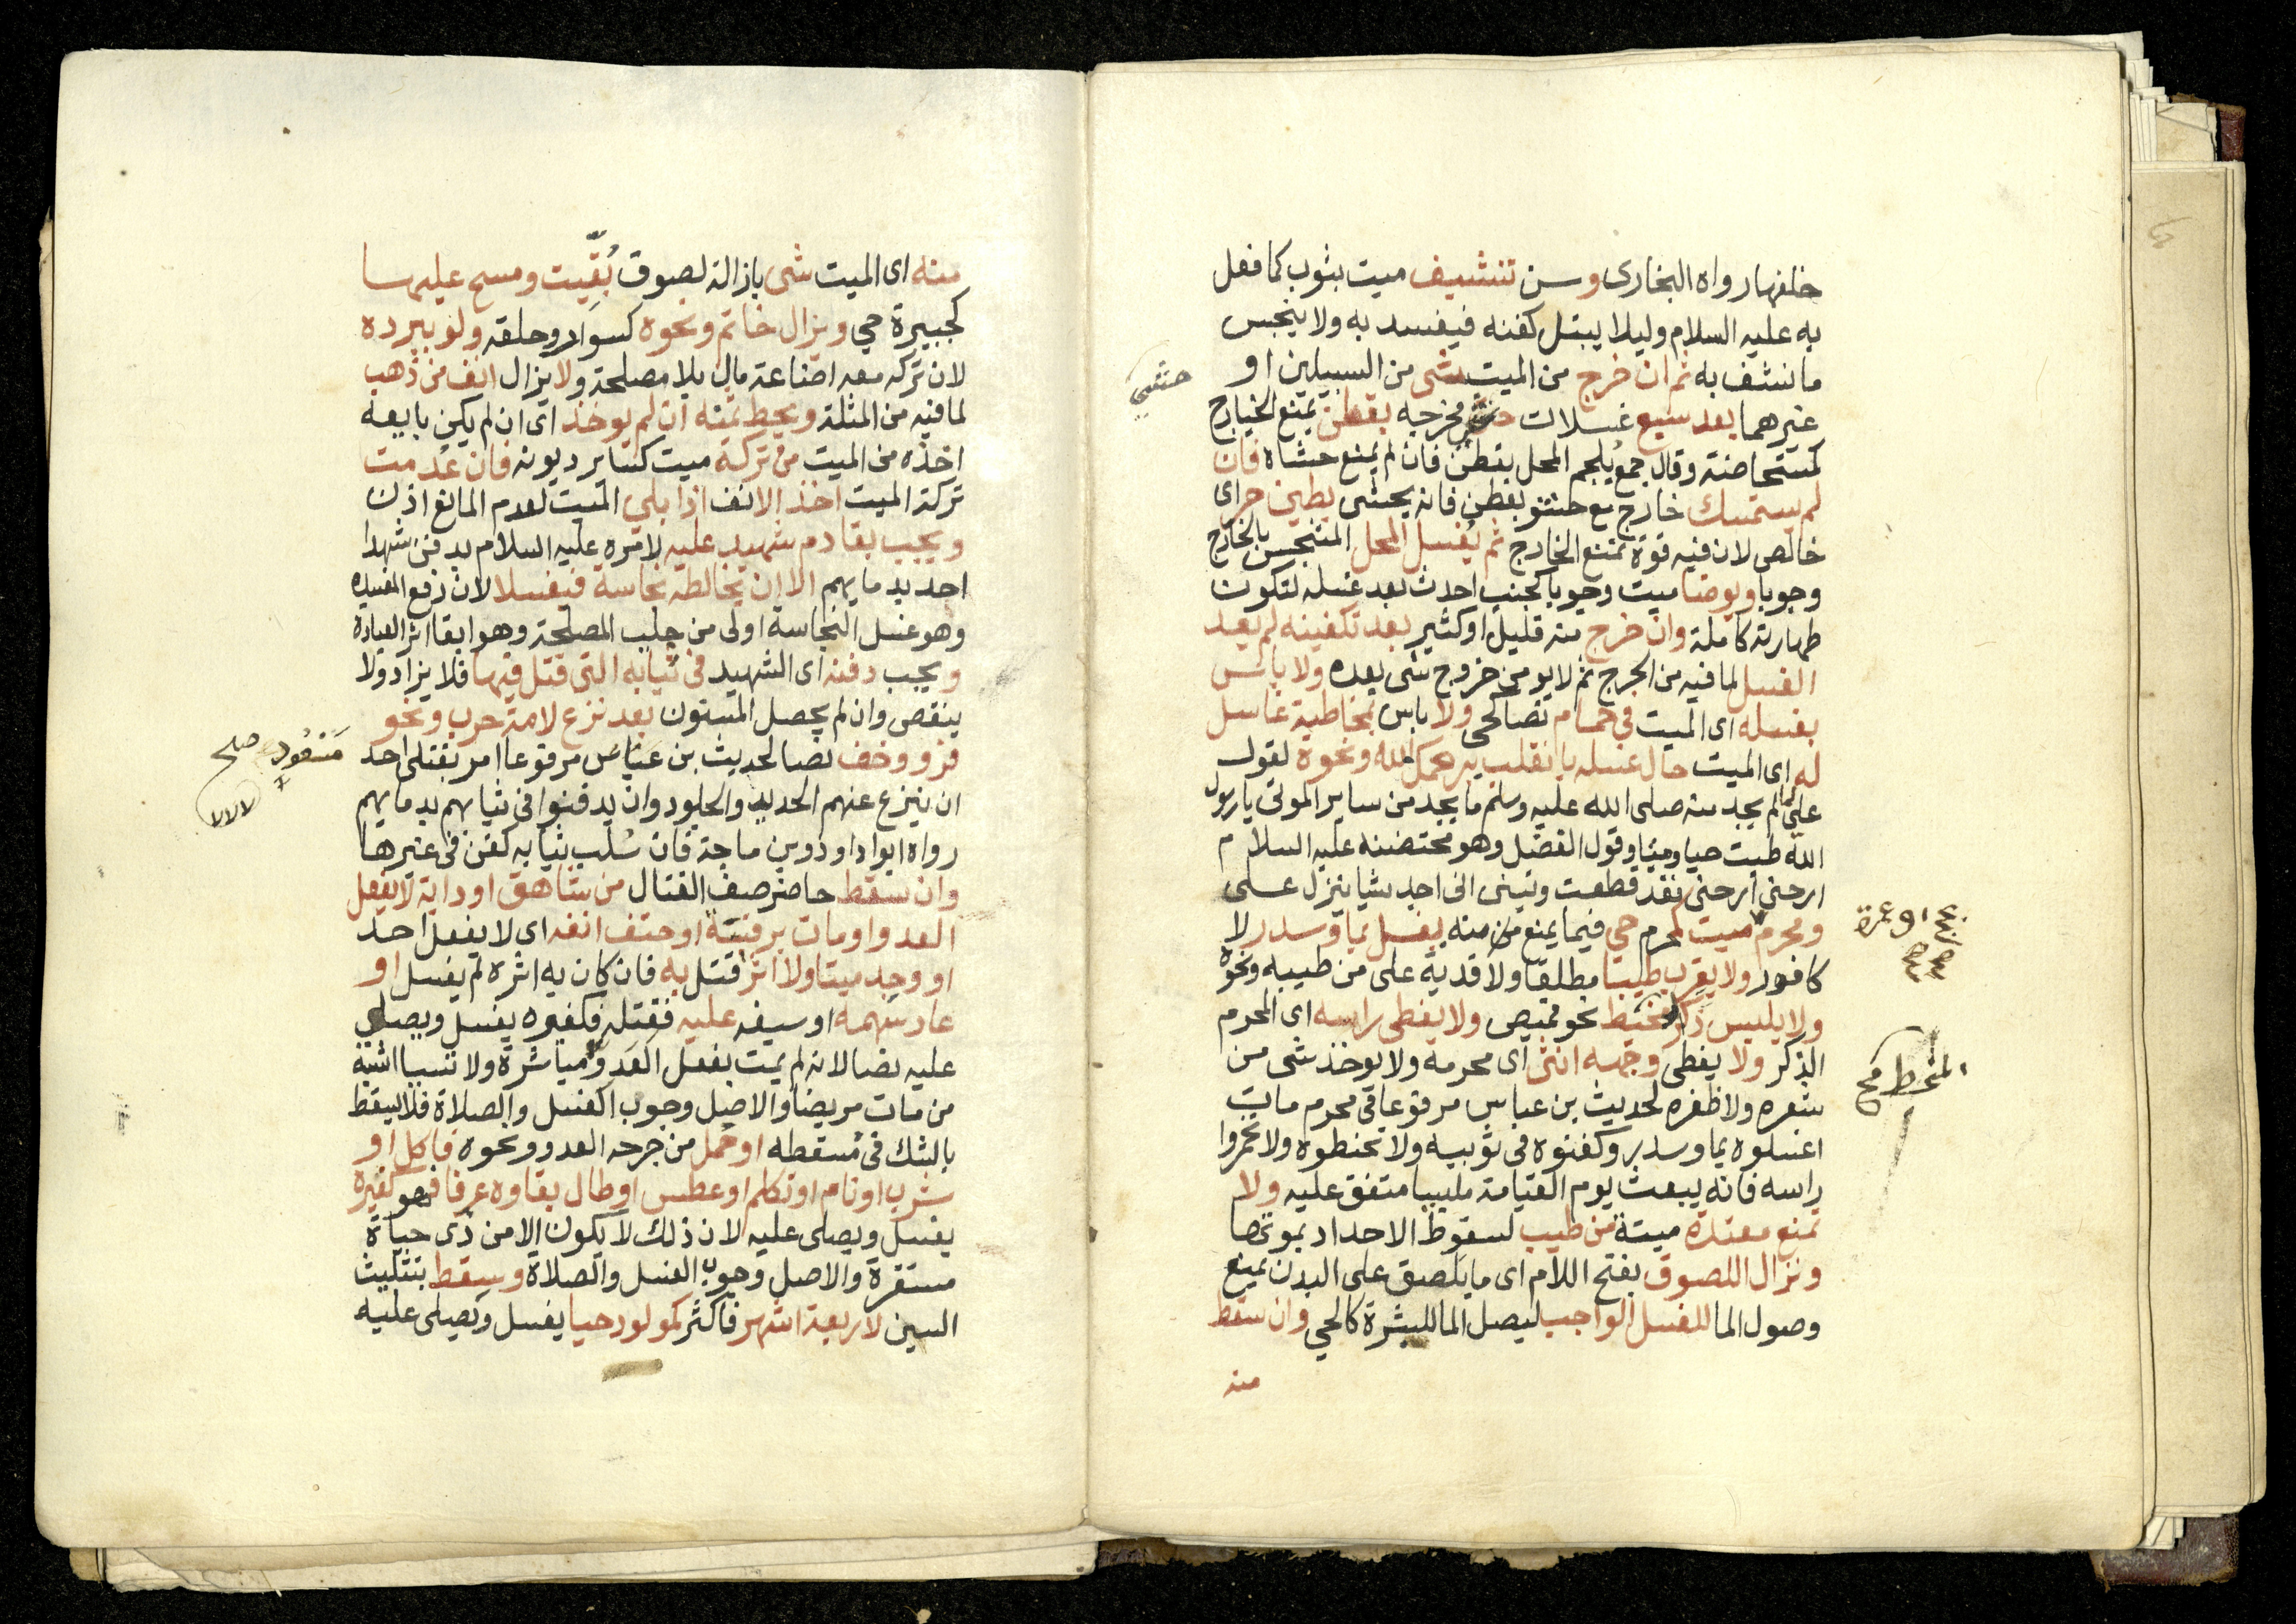 خلفها رواه البخارى وسن تنشيف ميت بثوب كما فعل
به عليه السلام وليلا يبتل كفنه فيفسد به ولا ينجس
ما نشف به ثم ان خرج من الميت شى من السبيلين او
حشي
غيرهما بعد سبع غسلات حشى مخرجه بقطن يمنع الخارج
كمستحاضة وقال جمع يلجم المحل بقطن فان لم يمنع حشاه فان
لم يستمسك خارج مع حشو بقطن فانه يحشى بطين حر اى
خالص لان فيه قوة تمنع الخارج ثم يغسل المحل المتنجس بالخارج
وجوبا ويوضا ميت وجوبا كجنب احدث بعد غسله لتكون
طهارته كاملة وان خرج منه قليل او كثير بعد تكفينه لم يعد
الغسل لما فيه من الحرج ثم لا يومن خروج شى بعده ولا باس
بغسله اى الميت فى حمام نصا كحى ولا باس بمخاطبة غاسل
له اى الميت حال غسله با نقلب يرحمك الله ونحوه لقول
على لما لم يجد منه صلى الله عليه وسلم ما يجد من ساير الموتى يا رسول
الله طبت حيا وميتا وقول الفضل وهو محتضنه عليه السلام
ارحنى ارحنى فقد قطعت وتينى انى اجد شيا ينزل على
ومحرم ميت كمحرم حي فيما يمنع من منه يغسل بما وسدر لا
بحج او عمرة
صح صح
كافور ولا يقرب طيبا مطلقا ولا فدية على من طيبه ونحوه
ولا يلبس ذكر المخيط نحو قميص ولا يغطى راسه اى المحرم
الذكر ولا يغطى وجهه انثى اى محرمه ولا يوخذ شى من
المخيط صح
شعره ولا ظفره لحديث بن عباس مرفوعا فى محرم مات
اغسلوه بما وسدر وكفنوه فى ثوبيه ولا تحنطوه ولا تخمروا
راسه فانه يبعث يوم القيامة ملبيا متفق عليه ولا
تمنع معتدة ميتة من طيب لسقوط الاحداد بموتها
ونزال اللصوق بفتح اللام اى ما يلصق على البدن يمنع
وصول الما للغسل الواجب ليصل الما للبشرة كالحي وان سقط
منه
منه اى الميت شى بازالة لصوق بُقّيت ومسح عليها
كجبيرة حي ويزال خاتم ونحوه كسوار وحلقه ولو ببرده
لان تركه معه اضاعة مال بلا مصلحة ولا يزال انف من ذهب
لما فيه من المثلة ويحط ثمنه ان لم يوخذ اى ان لم يكن بايعه
اخذه من الميت من تركة ميت كساير ديونه فان عدمت
تركة الميت اخذ الانف اذا بلي الميت لعدم المانع اذن
ويجب بقا دم شهيد عليه لامره عليه السلام بدفن شهدا
احد بدمايهم الا ان يخالطه نجاسة فيغسلا لان دفع المفسدة
وهو غسل النجاسة اولى من جلب المصلحة وهو ابقا اثر العبادة
ويجب دفنه اى الشهيد فى ثيابه التى قتل فيها فلا يزاد ولا
ينقص وان لم يحصل المسنون بعد نزع لامة حرب ونحو
فرو وخف نصا لحديث بن عباس مرفوعا امر بقتلى احد
ان ينزع عنهم الحديد والجلود وان يدفنوا فى ثيابهم بدمايهم
رواه ابو داود وبن ماجة فان سُلب ثيابه كفن فى غيرها
وان سقط حاضر صف القتال من شاهق او دابة لا بفعل
العدو او مات برفسة او حتف انفه اى لا بفعل احد
او وجد ميتا ولا اثر قتل به فان كان به اثره لم يغسل او
عاد سهمه او سيفه عليه فقتله فكغيره يغسل ويصلي
عليه نصا لانه لم يمت بفعل العدو مباشرة ولا تسببا اشبه
من مات مريضا والاصل وجوب الغسل والصلاة فلا يسقط
بالشك فى مُسقطه او حُمل من جرحه العدو ونحوه فاكل او
شرب او نام او تكلم او عطس او طال بقاوه عرفا فهو كغيره
يغسل ويصلى عليه لان ذلك لا يكون الا من ذى حياة
مستقرة والاصل وجوب الغسل والصلاة وسقط بتثليث
السين لاربعة اشهر فاكثر كمولود حيا يغسل ويصلى عليه